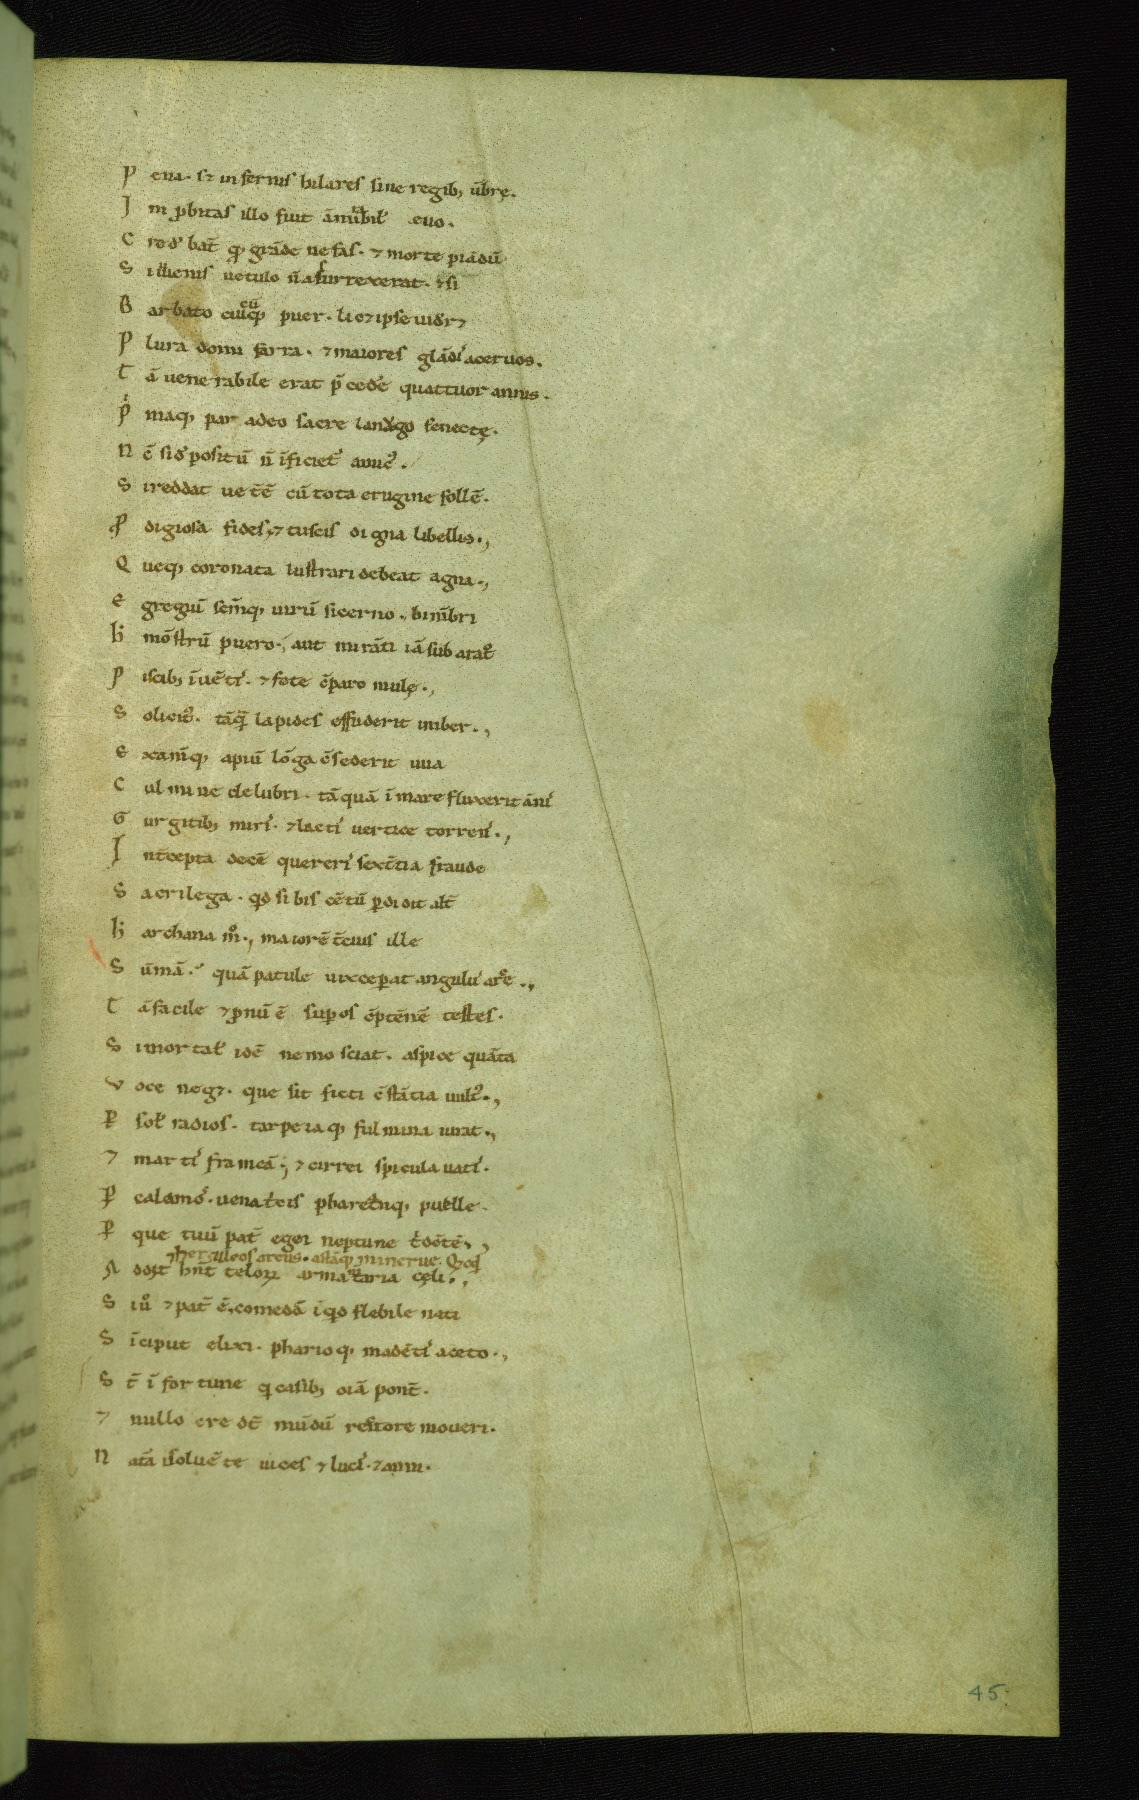 P ena. sꝫ infernis hilares sine regibꝫ ūbrę.
I nꝓbitas illo fuit ām̄abil' euo.
C redebāt qͦ grāde nefas. ⁊ morte piādū
S i iuuenis uetulo n̄ assurrexerat. ⁊ si
B arbato cuicūqꝫ puer. licꝫ ipse uidꝫ
P lura domi farra. ⁊ maiores glādis aceruos.
T ā uenerabile erat p̄cedere quattuor annis.
P̍ maqꝫ par adeo sacre lanugo senectę.
N c̄ si depositū n̄ īficiet᷑ amic᷒.
S i reddat uetēē cū tota erugine follē.
P̄ digiosa fides, ⁊ tuscis digna libellis.,
Q ueqꝫ coronata lustrari debeat agna.,
E gregiū sēmqꝫ uirū si cerno., bimēbri
h' mōstrū puero., aut mirāti iā sub aratͦ
P iscibꝫ īuētis. ⁊ fete cōparo mulę.,
S olicit᷒. tāqᷓ lapides effuderit imber.,
E xam̄qꝫ apiū lōga cōsederit uua
C ulmine delubri. tāquā ī mare fluxerit ānis
G urgitibꝫ miris. ⁊ lactis uertice torrens.,
I nt̄cepta decē quereris sext̄tia fraude
S acrilega. qd si bis cētū ꝑdidit alt̄
h' archana mͦ., maiorē t̄cius ille
S ūmā. quā patule uix ceꝑat angulus arce.,
T ā facile ⁊ ꝓnū ē suꝑos cōptēnē testes.
S i mortal' idē nemo sciat. aspice quāta
V oce negꝫ. que sit ficti cōstātia uult᷒.,
P̱ sol' radios. tarpeiaqꝫ fulmina iurat.,
⁊ martis frameā., ⁊ cirrei spicula uatis.
P̱ calamos. uenat̄cis pharet̄mqꝫ puelle.
P̱ que tuū pat̄ egei neptune t̍dētē.,
⁊ herculeos arcus. astāqꝫ minerue. Qͥcqͥd
A ddit hn̄t teloꝝ armamtaria cęli.,
S iuͦ ⁊ pat̄ ē, comedā īqd flebile nati
S īciput elixi. pharioqꝫ madētis aceto.,
S t̄ ī fortune qͥ casibꝫ oīa pont̄.
⁊ nullo credt̄ mūdū rectore moueri.
N atā uoluēte uices ⁊ lucis. ⁊ anni.
45.